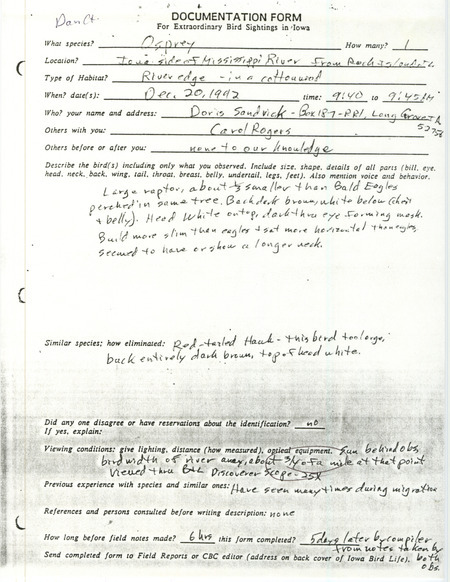 Dan Ct.
DOCUMENTATION FORM
For Extraordinary Bird Sightings in Iowa
What species? Osprey How many? 1
Location? Iowa side of Mississippi River from Rock Island Ill.
Type of Habitat? River edge - in a cottonwood
When? date(s): Dec. 20, 1992 time: 9:40 to 9:45 AM
Who? your name and address: Doris Sandvick - Box 187 - RR1, Long Grove IA
52756
Others with you: Carol Rogers
Others before or after you: none to our knowledge
Describe the bird(s) including only what you observed. Include size, shape, details of all parts (bill, eye,
head, neck, back, wing, tail, throat, breast, belly, undertail, legs, feet). Also mention voice and behavior.
Large raptor, about ⅓ smaller than Bald Eagles
perched in same tree. Back dark brown, white below (chest
& belly). Head white on top, dark thru eye forming mask.
Build more slim than eagles & sat more horizontal than eagles
seemed to have or show a longer neck.
Similar species; how eliminated: Red-tailed Hawk - this bird too large,
back entirely dark brown, top of head white.
Did any one disagree or have reservations about the identification? no
If yes, explain:
Viewing conditions: give lighting, distance (how measured), optical equipment. Sun behind obs,
bird width of river away, about 3/4 of a mile at that point
Viewed thru B&L Discoverer Scope - 25X
Previous experience with species and similar ones: Have seen many times during migration
References and persons consulted before writing description: none
How long before field notes made? 6 hrs this form completed? 5 days later by compiler
from notes taken by
Send completed form to Field Reports or CBC editor (address on back cover of Iowa Bird Life). both
obs.